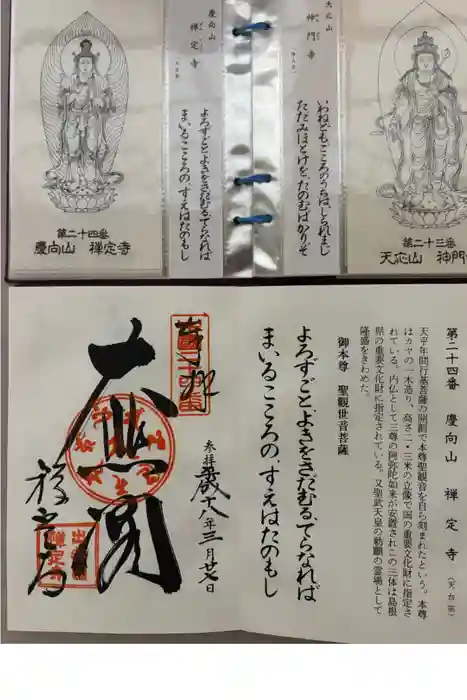 天応山
神門寺
いわねどもこころのうちはしられまじ
ただみほとけを、たのむばかりぞ
第二十三番
天応山 神門
慶向山
禅定寺
よろずごとよきをさだむるてらなれば
まいるこころの、すえはたのもし
第二十四番
慶向山 禅定寺
第二十四番 慶向山 禅定寺 (天台宗)
天平年間行基菩薩の開創で本尊聖観音を自ら刻まれたという。本尊
はカヤの一木造り、高さ二・三米の立像で国の重要文化財に指定さ
れている。内仏として三尊の阿弥陀如来が安置されこの三体は島根
県の重要文化財に指定されている。又聖武天皇の勅願の霊場として
隆盛をきわめた。
御本尊 聖観世音菩薩
よろずごと、よきをさだむる、てらなれば
まいるこころの、すえはたのもし
参拝 八年三月廿七日
奉拝
大悲閣
禅定寺